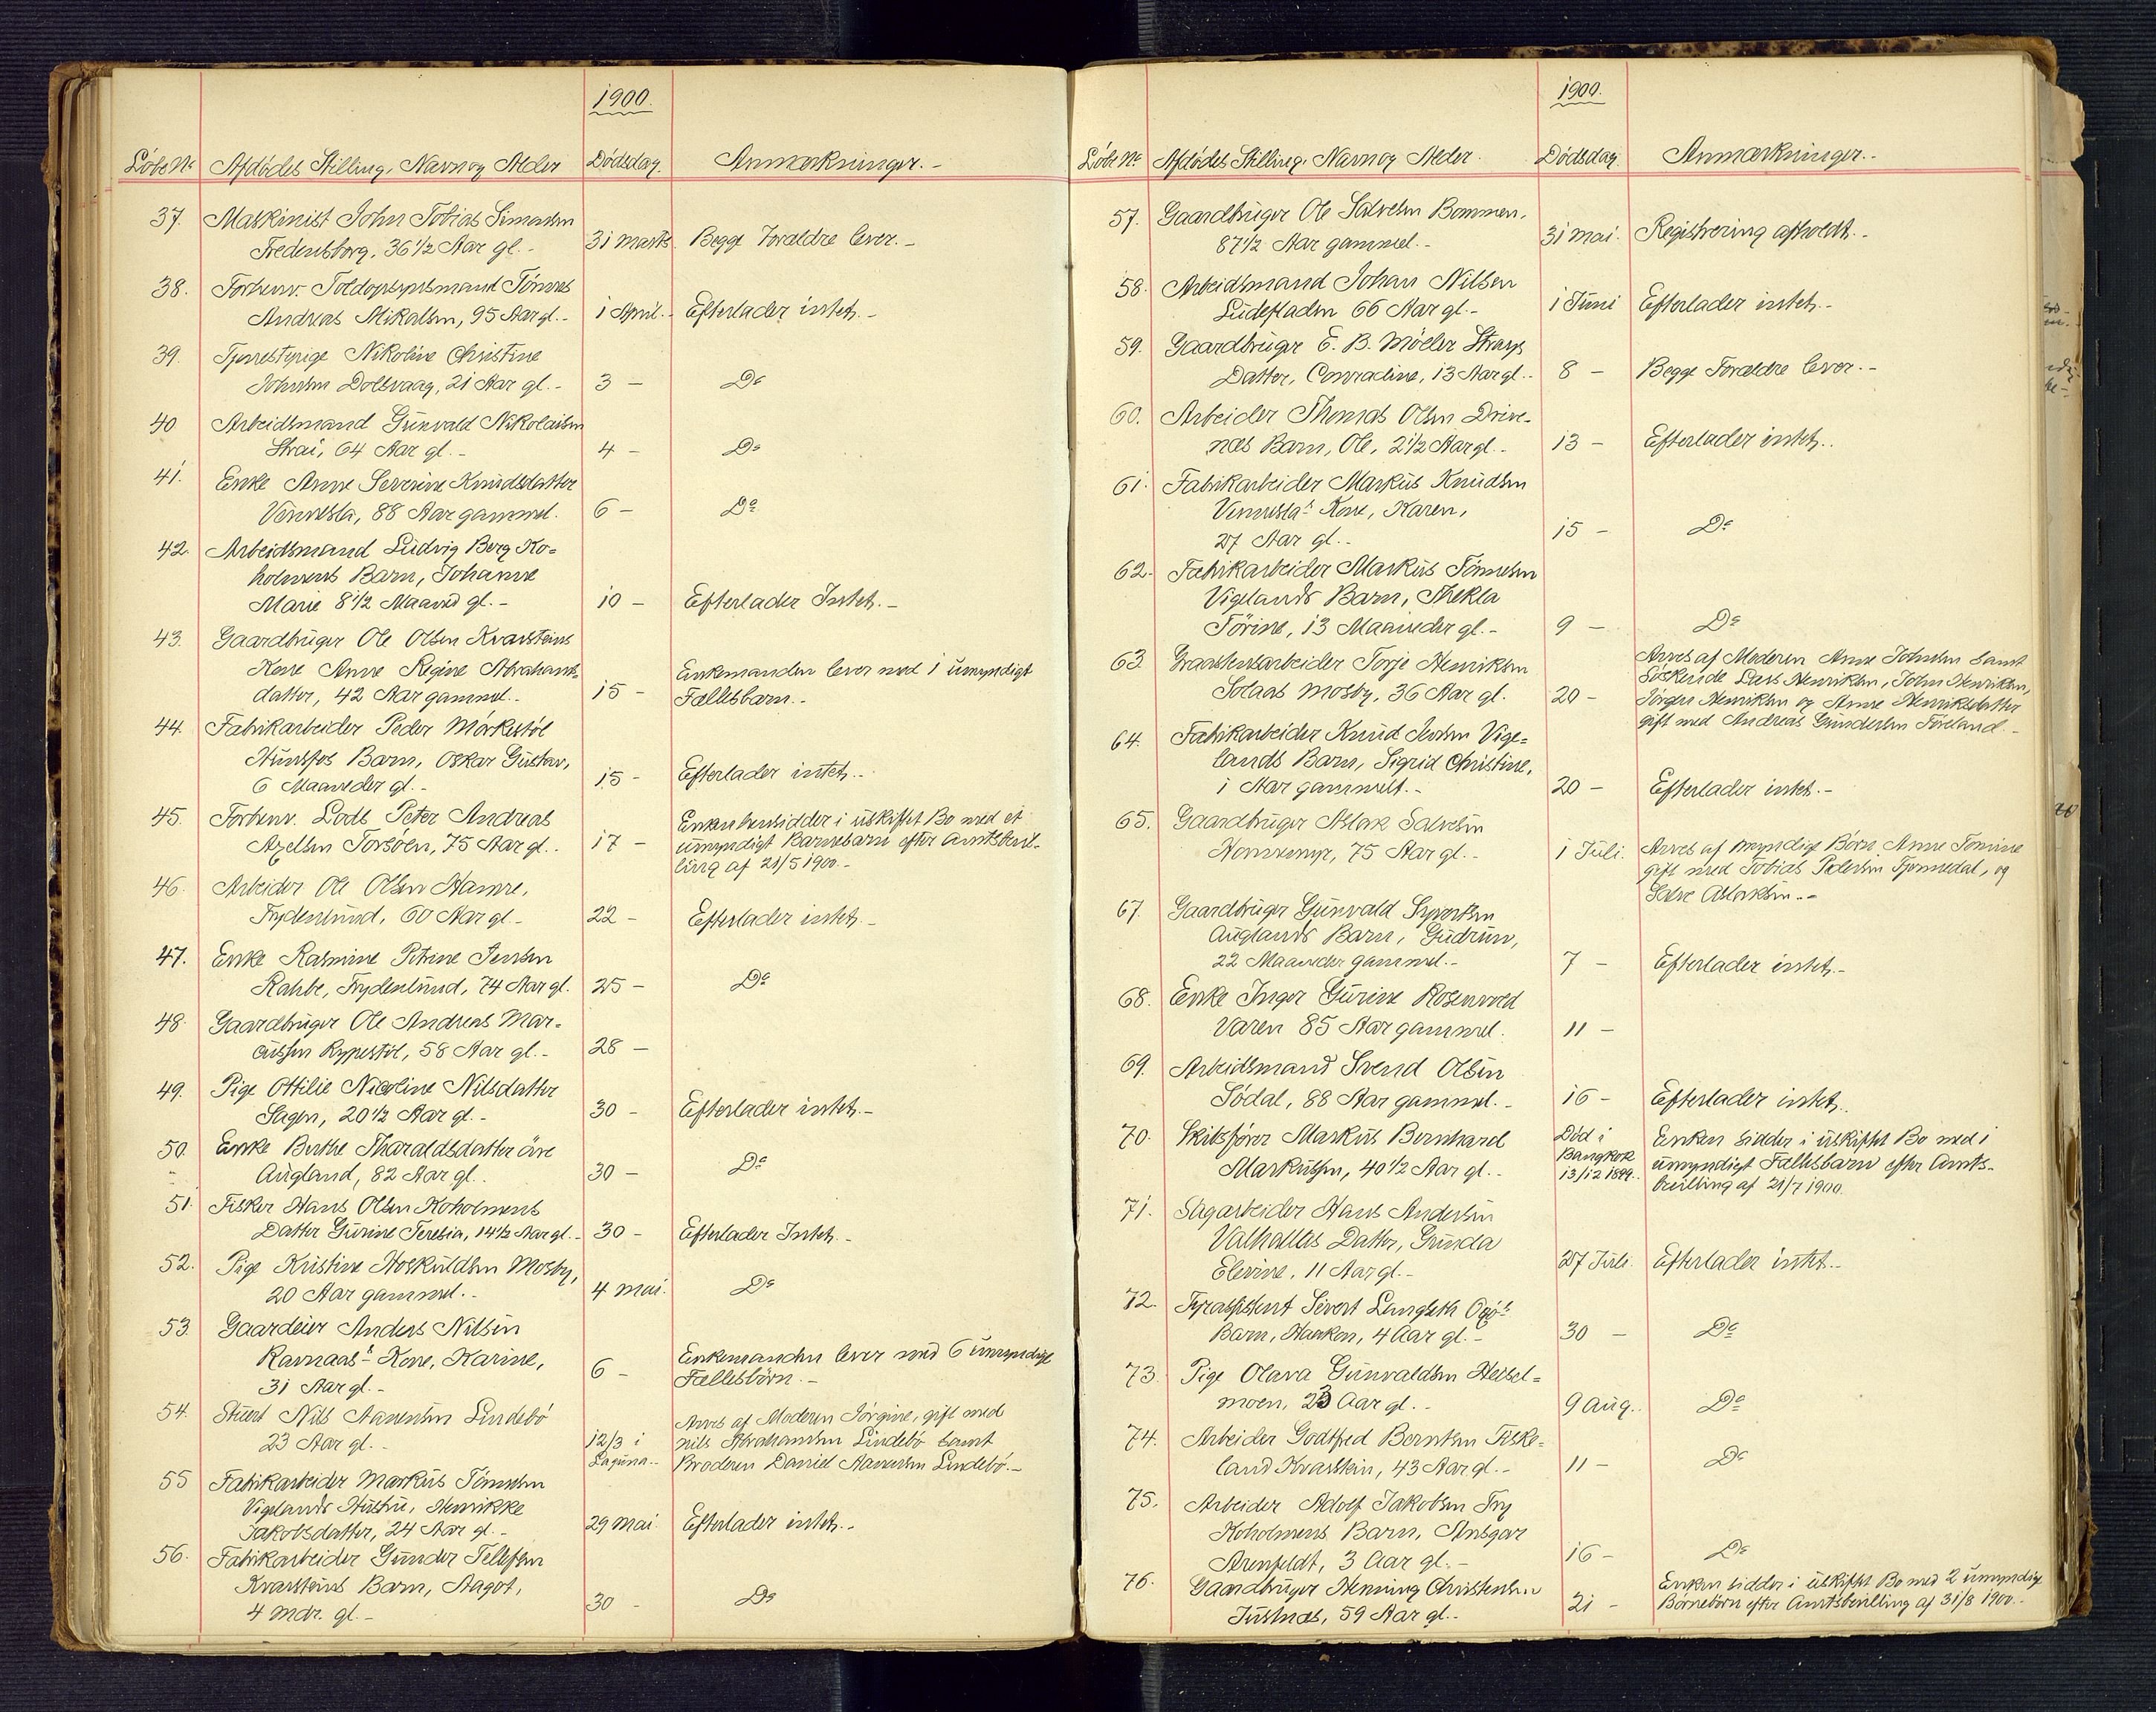 1900.
Löbe No Afdödes Stilling, Navn og Alder Dödsdag. Anmærkninger.-
37. Maskinist John Tobias Simonsen
Fredensborg, 36 1/2 Aar gl.- 31 Marts Begge Forældre lever.-
38. Forhenv. Toldopsynsmand Tönnes
Andreas Mikalsen, 95 Aar gl.- 1 April.- Efterlader intet.-
39. Tjenestepige Nikoline Christine
Johnsen Dolsvaag, 21 Aar gl.- 3 - Do
40 Arbeidsmand Gunvald Nikolaisen
Strai, 64 Aar gl.- 4 - Do
41. Enke Anne Severine Knudsdatter
Vennesla, 88 Aar gammel. 6 - Do
42. Arbeidsmand Ludvig Berg Ko-
holmens Barn, Johanne
Marie 8 1/2 Maaned gl.- 10 - Efterlader Intet.-
43. Gaardbruger Ole Olsen Kvarsteins
Kone Anne Regine Abrahams-
datter, 42 Aar gammel.- 15 - Enkemanden lever med 1 umyndigt
Fællesbarn.-
44. Fabrikarbeider Peder Mörkestöl
Hunsfos Barn, Oskar Gustav,
6 Maaneder gl.- 15 - Efterlader intet.-
45. Forhenv. Lods Peter Andreas
Axelsen Torsöen, 75 Aar gl.. 17 - Enken hensidder i uskiftet Bo med et
umyndigt Barnebarn efter Amtsbevil-
ling af 21/5 1900.-
46. Arbeider Ole Olsen Hamre,
Frydenlund, 60 Aar gl.- 22 - Efterlader intet.-
47. Enke Rasmine Petrine Jensen
Rahbe, Frydenlund, 74 Aar gl. 25 - Do
48. Gaardbruger Ole Andreas Mar-
cussen Rypestöl, 58 Aar gl.- 28 -
49. Pige Ottilie Nicoline Nilsdatter
Sagen, 20 1/2 Aar gl.- 30 - Efterlader intet.-
50. Enke Berthe Tharaldsdatter övre
Augland, 82 Aar gl.. 30 - Do
51. Fisker Hans Olsen Koholmens
Datter Gurine Teresia, 14 1/2 Aar gl.- 30 - Efterlader Intet.-
52. Pige Kristine Hoskuldsen Mosby,
20 Aar gammel.- 4 Mai. Do
53. Gaardeier Anders Nilsen
Ravnaas's Kone, Karine,
31 Aar gl.- 6 - Enkemanden lever med 6 umyndige
Fællesbörn.-
54. Stuert Nils Aanensen Lindebö
23 Aar gl.- 12/3 i
Laguna.- Arves af Moderen Jörgine, gift med
Nils Abrahamsen Lindebö samt
Broderen Daniel Aanensen Lindebö.-
55 Fabrikarbeider Markus Tönnesen
Vigelands Hustru, Henrikke
Jakobsdatter, 24 Aar gl.- 29 Mai Efterlader intet.-
56. Fabrikarbeider Gunder Tellefsen
Kvarsteins Barn, Aagot,
4 Mdr. gl.- 30 - Do
1900.
Löbe No Afdödes Stilling, Navn og Alder. Dödsdag. Anmærkninger.-
57. Gaardbruger Ole Salvesen Bommen,
87 1/2 Aar gammel.- 31 Mai. Registrering afholdt.-
58. Arbeidsmand Johan Nilsen
Ludeflaten 66 Aar gl.- 1 Juni Efterlader intet.-
59. Gaardbruger E. B. Möller Strays
Datter, Conradine, 13 Aar gl.- 8 - Begge Forældre lever.-
60. Arbeider Thomas Olsen Drive-
næs Barn, Ole, 2 1/2 Aar gl.- 13 - Efterlader intet.-
61. Fabrikarbeider Markus Knudsen
Vennesla's Kone, Karen,
27 Aar gl.- 15 - Do
62. Fabrikarbeider Markus Tönnesen
Vigelands Barn, Thekla
Törine, 13 Maaneder gl.- 9 - Do
63. Graastensarbeider Torje Henriksen
Solaas Mosby, 36 Aar gl. 20 - Arves af Moderen Anne Johnsen samt
Söskende Lars Henriksen, John Henriksen,
Jörgen Henriksen og Anne Henriksdatter
gift med Andreas Gundersen Föreland.-
64. Fabrikarbeider Knud Jensen Vige-
lands Barn, Sigrid Christine,
1 Aar gammelt.- 20 - Efterlader intet.-
65. Gaardbruger Aslak Salvesen
Homremyr, 75 Aar gl.- 1 Juli. Arves af myndige Börn Anne Tomine
gift med Tobias Pedersen Tjomnedal, og
Salve Aslaksen.-
67. Gaardbruger Gunvald Syvertsen
Auglands Barn, Gudrun,
22 Maaneder gammel.- 7 - Efterlader intet.-
68. Enke Inger Gurine Rosenvold
Varen 85 Aar gammel. 11 -
69. Arbeidsmand Svend Olsen
Södal, 88 Aar gammel.- 16 - Efterlader intet.
70. Skibsförer Markus Bernhard
Markussen, 40 1/2 Aar gl.- Död i
Bangkok
13/12 1899. Enken sidder i uskiftet Bo med 1
umyndigt Fællesbarn efter Amts-
bevilling af 21/7 1900.
71. Sagarbeider Hans Andersen
Valhallas Datter, Gunda
Elevine, 11 Aar gl.- 27 Juli. Efterlader intet.-
72. Fyrassistent Sivert Langseth Oxö's
Barn, Haakon, 4 Aar gl.- 30 - Do
73. Pige Olava Gunvaldsen Heisel-
moen, 23 Aar gl.- 9 Aug.. Do
74. Arbeider Godtfred Berntsen Fiske-
land Kvarstein, 43 Aar gl.- 11 - Do
75. Arbeider Adolf Jakobsen Fry
Koholmens Barn, Ansgar
Arenfeldt, 3 Aar gl.- 16 - Do
76. Gaardbruger Henning Christensen
Justnæs, 59 Aar gl.- 21 - Enken sidder i uskiftet Bo med 2 umyndige
Börnebörn efter Amtsbevilling af 31/8 1900.-